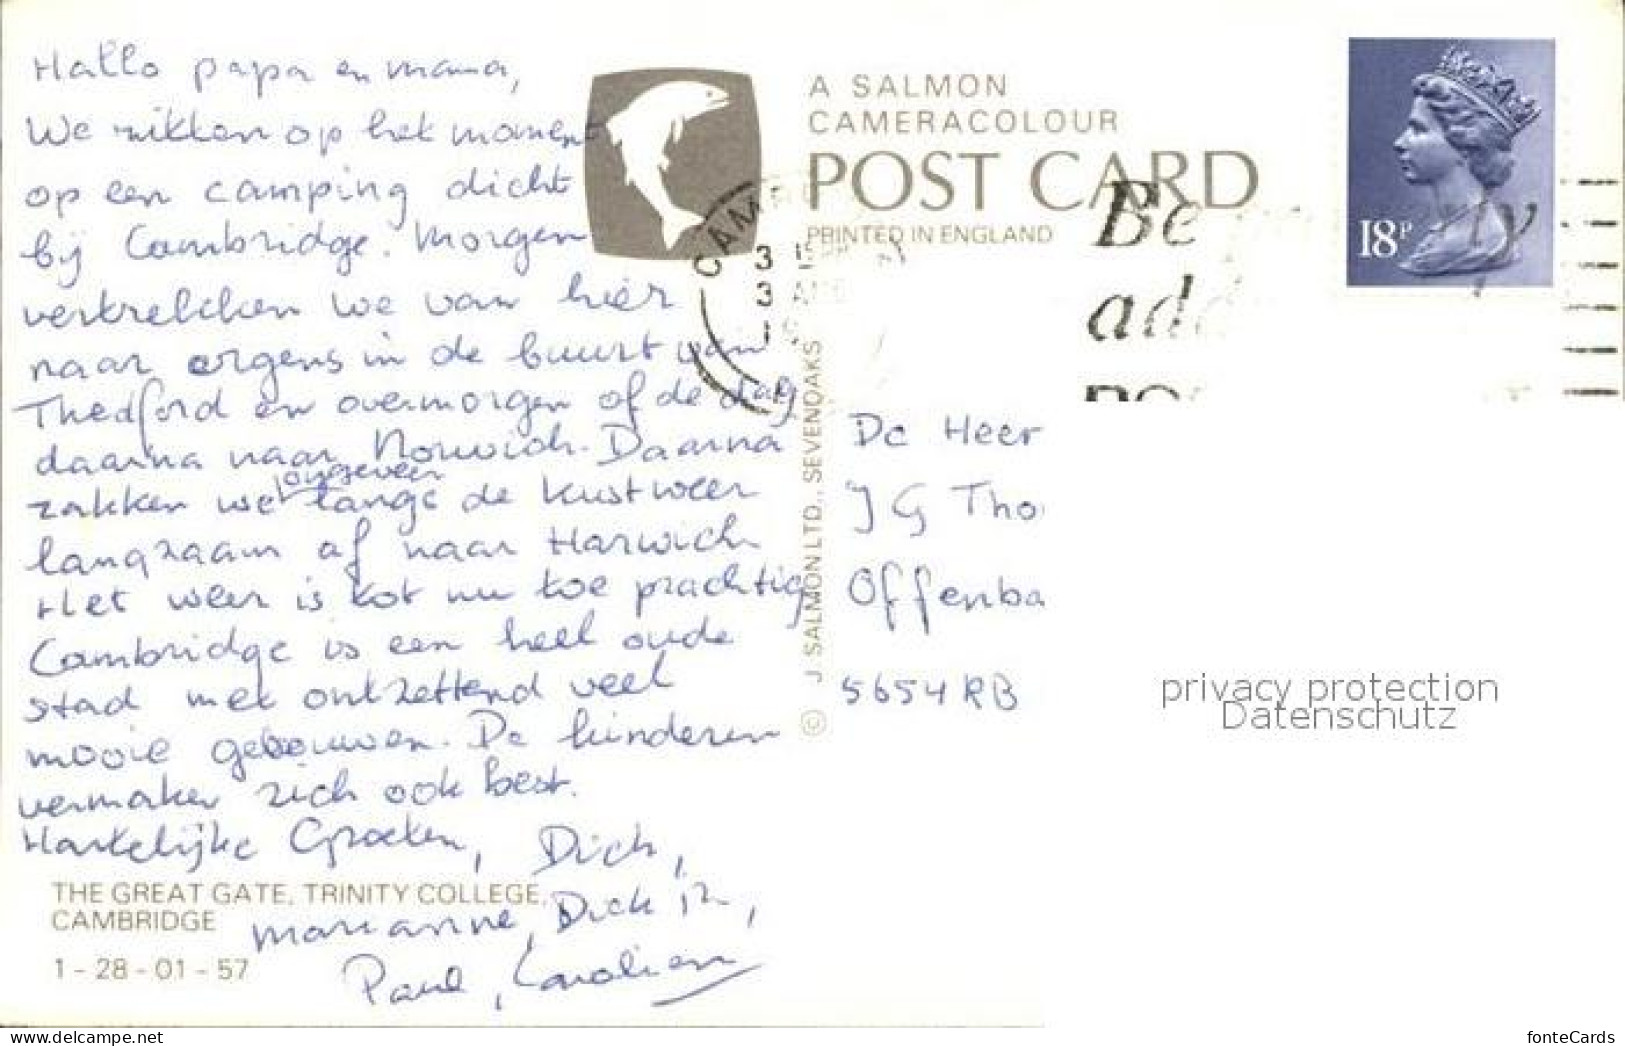 Hallo papa en mama,
We zitten op het moment
op een camping dicht
bij Cambridge. Morgen
vertrekken we van hier
naar ergens in de buurt van
Thedford en overmorgen of de dag
daarna naar Norwich. Daarna
ongeveer
zakken we langs de kust weer
langzaam af naar Harwich
Het weer is tot nu toe prachtig
Cambridge is een heel oude
stad met ontzettend veel
mooie gebouwen. De kinderen
vermaken zich ook best.
Hartelijke Groeten, Dick,
Marianne, Dick jr,
Paul, Karolien
THE GREAT GATE, TRINITY COLLEGE,
CAMBRIDGE
1 - 28 - 01 - 57
A SALMON
CAMERACOLOUR
POST CARD
PRINTED IN ENGLAND
© J. SALMON LTD., SEVENOAKS
CAMB
3
3 AUG
Be
add
18P
De Heer
J G Tho
Offenba
5654 RB
privacy protection
Datenschutz
fonteCards